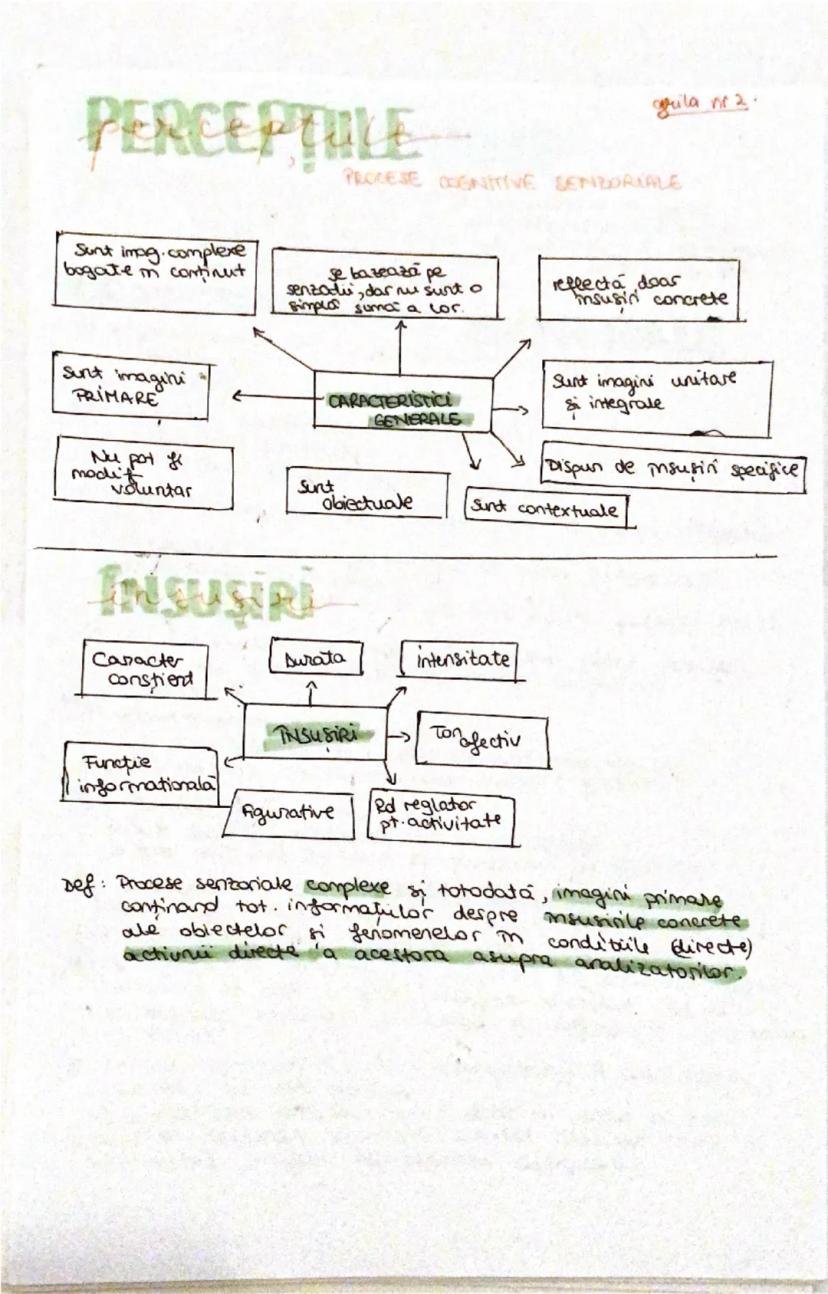 grila nr 2.
PERCEPȚIILE
percepțiile
PROCESE COGNITIVE SENZORIALE
Sunt imag. complexe
bogate în conținut
se bazează pe
senzații, dar nu sunt o
simplă sumă a lor.
reflectă doar
însușiri concrete
Sunt imagini
PRIMARE
CARACTERISTICI
GENERALE
Sunt imagini unitare
și integrale
Nu pot fi
modif
voluntar
Sunt
obiectuale
Sunt contextuale
Dispun de însușiri specifice
ÎNSUȘIRI
însușiri
Caracter
conștient
Durata
intensitate
ÎNSUȘIRI
Ton afectiv
Funcție
informatională
Figurative
Rol reglator
pt. activitate
Def: Procese senzoriale complexe și totodată, imagini primare
conținând tot. informațiilor despre însusirile concrete
ale obiectelor și fenomenelor în conditiile (directe)
acțiunii directe a acestora asupra analizatorilor.